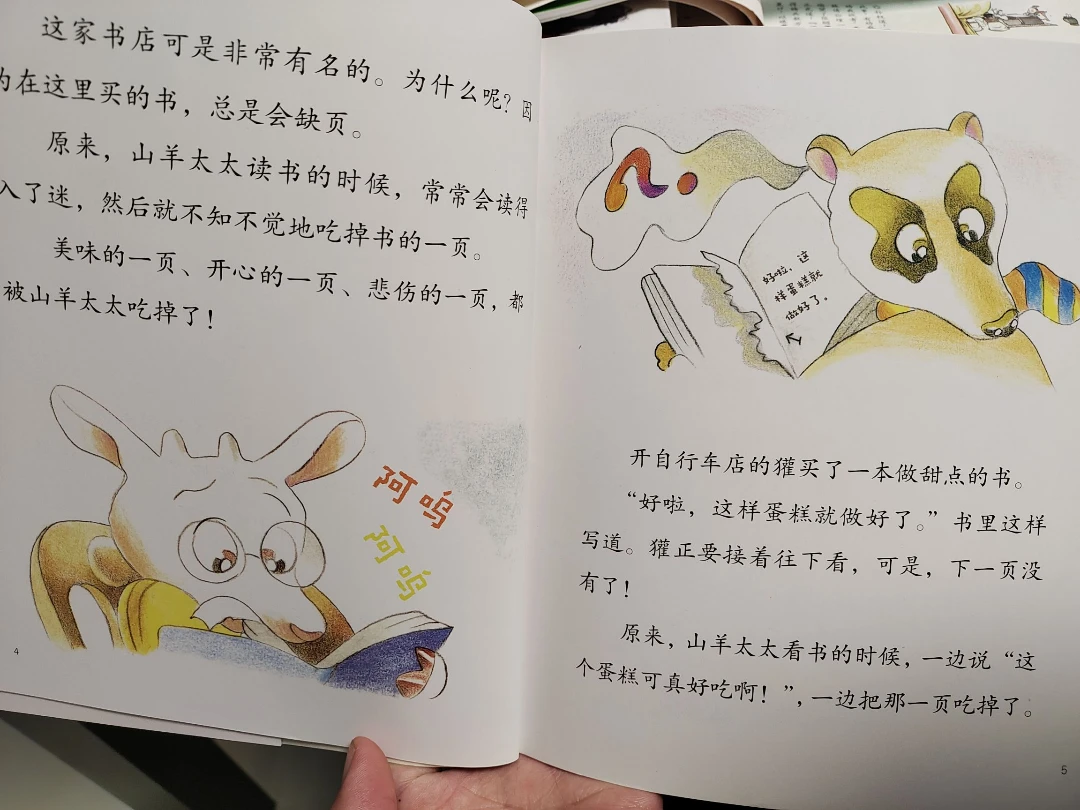 这家书店可是非常有名的。为什么呢？因
为在这里买的书，总是会缺页。
原来，山羊太太读书的时候，常常会读得
入了迷，然后就不知不觉地吃掉书的一页。
美味的一页、开心的一页、悲伤的一页，都
被山羊太太吃掉了！
阿呜
阿呜
4
?
好啦，这
样蛋糕就
做好了。
开自行车店的獾买了一本做甜点的书。
“好啦，这样蛋糕就做好了。”书里这样
写道。獾正要接着往下看，可是，下一页没
有了！
原来，山羊太太看书的时候，一边说“这
个蛋糕可真好吃啊！”，一边把那一页吃掉了。
5